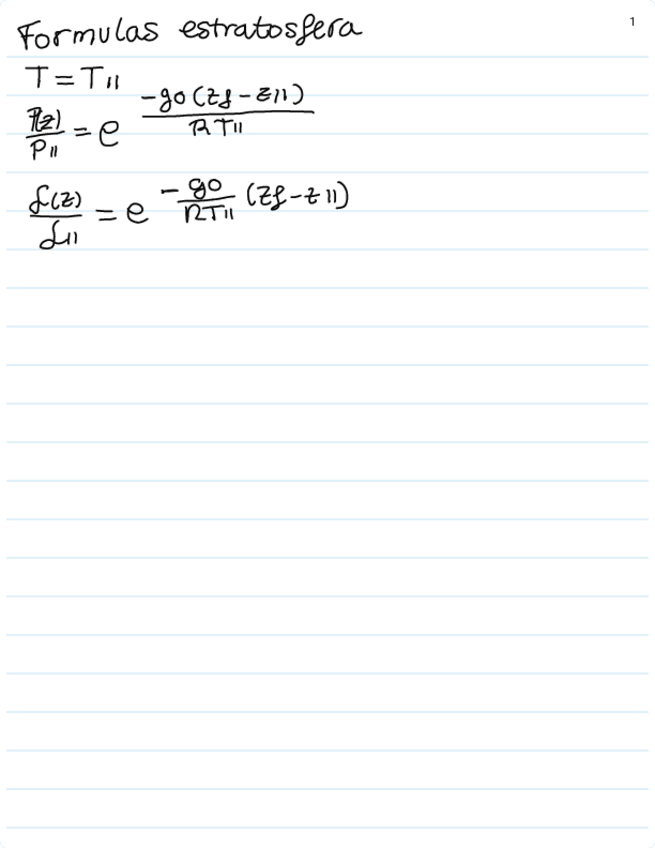 Formulas estratosfera
1
T = T11
P(z)/P11 = e^(-g0(zf-z11)/RT11)
ρ(z)/ρ11 = e^(-g0/RT11 (zf-z11))